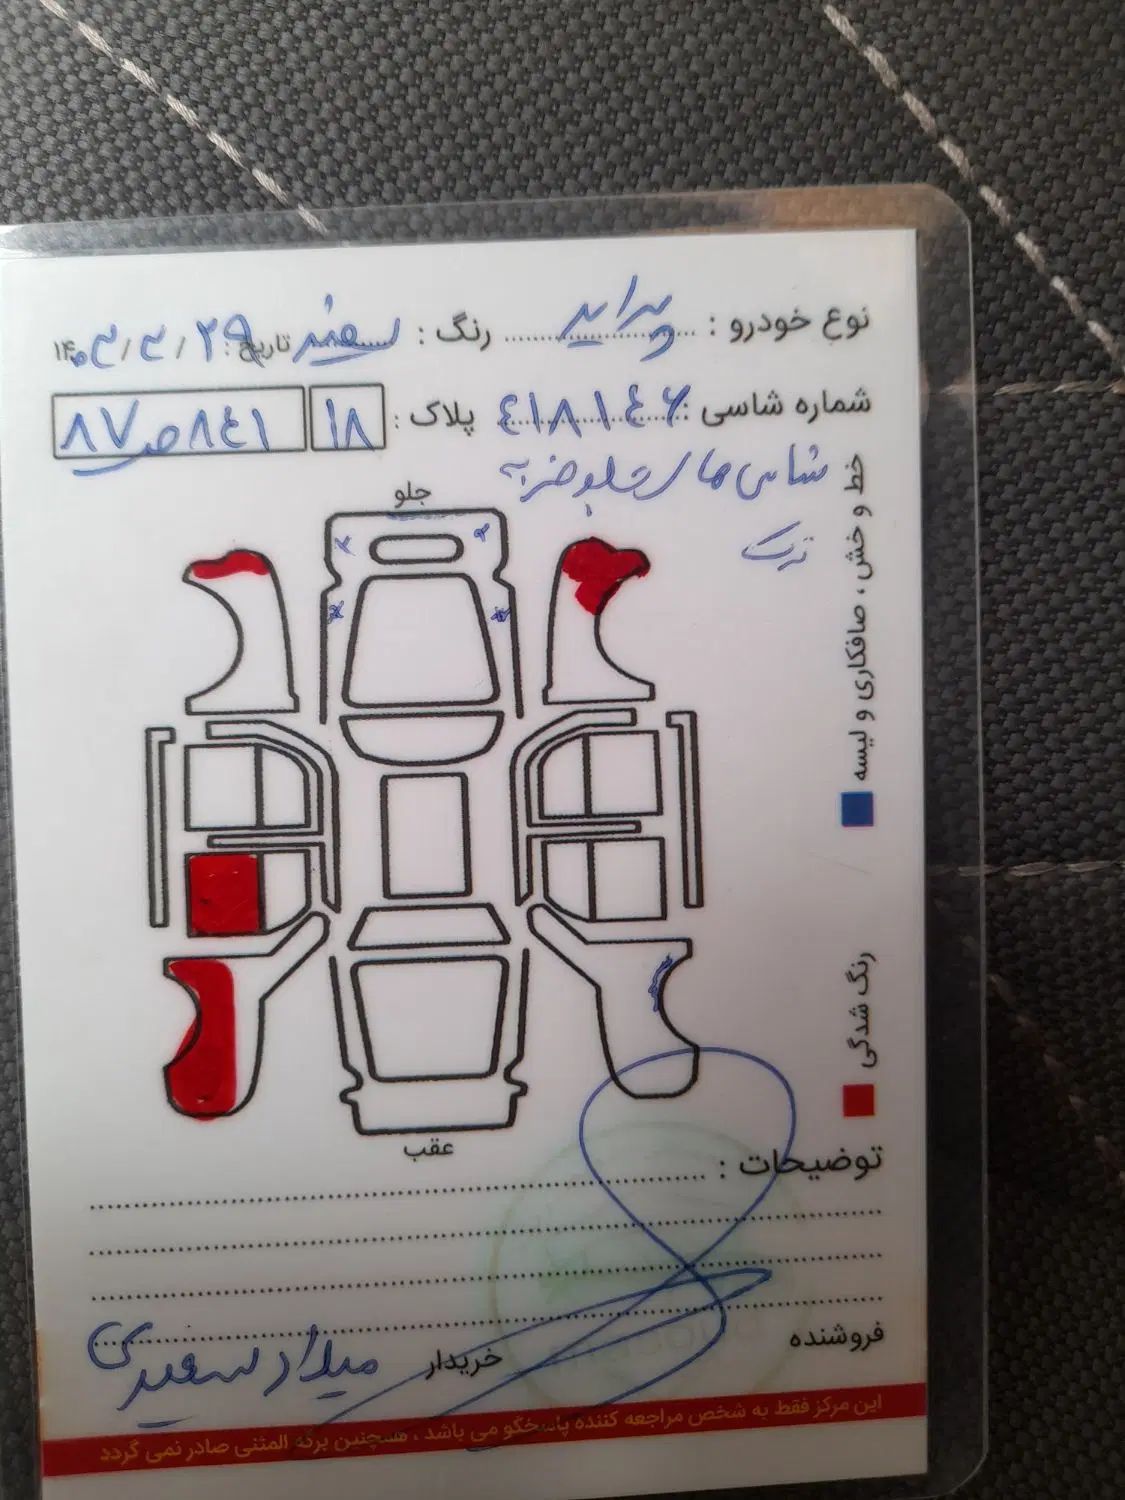 نوع خودرو : پراید رنگ : سفید تاریخ : ۱۴۰۳/۳/۲۹
شماره شاسی : ۴۱۸۱۴۶ پلاک : ۱۸ ۸۴۱ ص ۸۷
شاسی های جلو ضربه
جلو
خط و خش ، صافکاری و لیسه
رنگ شدگی
عقب
توضیحات :
فروشنده
خریدار میلاد سعیدی
این مرکز فقط به شخص مراجعه کننده پاسخگو می باشد ، همچنین برگه المثنی صادر نمی گردد